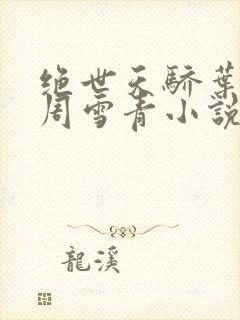 绝世天驕葉
周雪青小説
龍溪